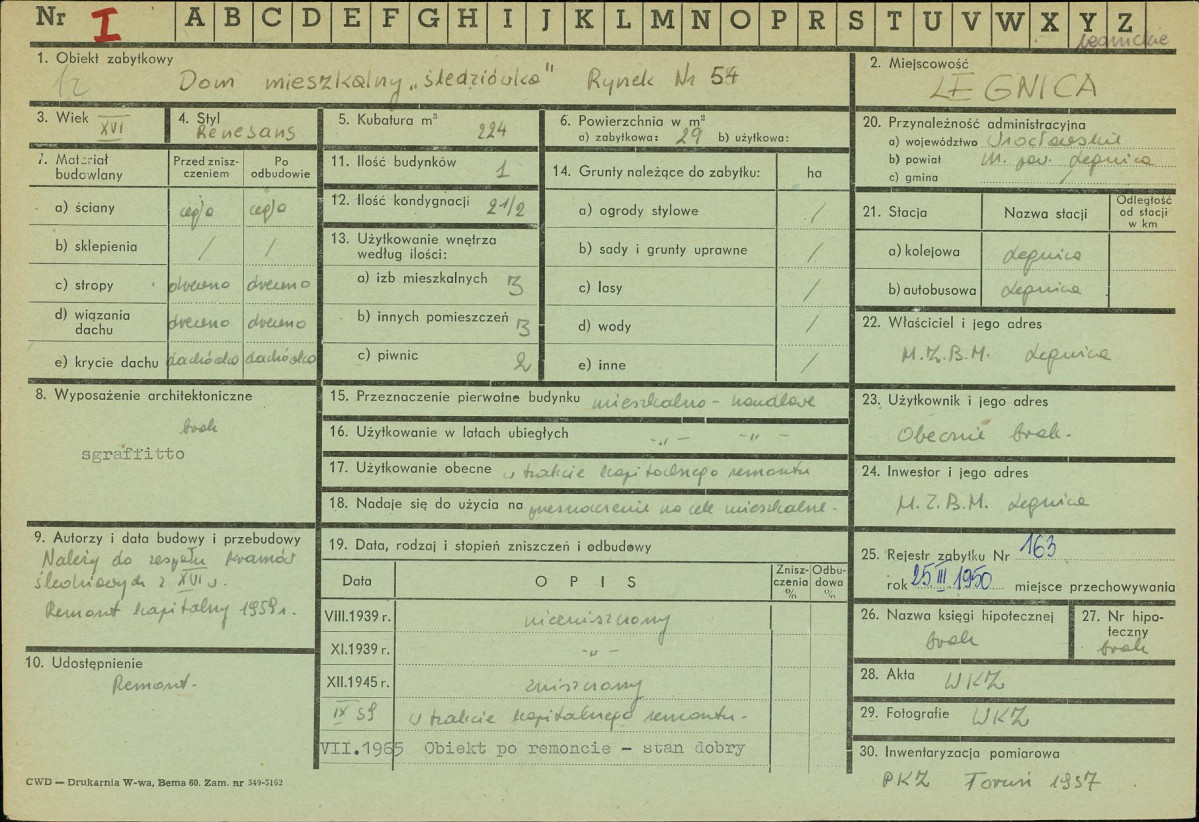 Nr I A B C D E F G H I J K L M N O P R S T U V W X Y Z
legnickie
1. Obiekt zabytkowy
Dom mieszkalny „śledziówka" Rynek Nr 54
2. Miejscowość
LEGNICA
3. Wiek XVI
4. Styl Renesans
5. Kubatura m³ 224
6. Powierzchnia w m²
a) zabytkowa: 29 b) użytkowa:
7. Materiał budowlany
Przed zniszczeniem
Po odbudowie
a) ściany cegła cegła
b) sklepienia / /
c) stropy drewno drewno
d) wiązania dachu drewno drewno
e) krycie dachu dachówka dachówka
8. Wyposażenie architektoniczne
brak
sgraffitto
9. Autorzy i data budowy i przebudowy
Należy do zespołu kramów
śledziowych z XVI w.
Remont kapitalny 1959 r.
10. Udostępnienie
Remont.
11. Ilość budynków 1
12. Ilość kondygnacji 2 1/2
13. Użytkowanie wnętrza według ilości:
a) izb mieszkalnych 3
b) innych pomieszczeń 3
c) piwnic 2
14. Grunty należące do zabytku: ha
a) ogrody stylowe /
b) sady i grunty uprawne /
c) lasy /
d) wody /
e) inne /
15. Przeznaczenie pierwotne budynku mieszkalno - handlowe
16. Użytkowanie w latach ubiegłych -„- -„-
17. Użytkowanie obecne w trakcie kapitalnego remontu
18. Nadaje się do użycia na przeznaczenie na cele mieszkalne.
19. Data, rodzaj i stopień zniszczeń i odbudowy
Data
O P I S
Zniszczenia %
Odbudowa %
VIII.1939 r. niezniszczony
XI.1939 r. -„-
XII.1945 r. zniszczony
IX 59 w trakcie kapitalnego remontu.
VII.1965 Obiekt po remoncie - stan dobry
20. Przynależność administracyjna
a) województwo Wrocławskie
b) powiat M. pow. Legnica
c) gmina /
21. Stacja
Nazwa stacji
Odległość od stacji w km
a) kolejowa Legnica
b) autobusowa Legnica
22. Właściciel i jego adres
M.Z.B.M. Legnica
23. Użytkownik i jego adres
Obecnie brak.
24. Inwestor i jego adres
M.Z.B.M. Legnica
25. Rejestr zabytku Nr 163
rok 25 III 1950 miejsce przechowywania
26. Nazwa księgi hipotecznej
brak
27. Nr hipoteczny
brak
28. Akta WKZ
29. Fotografie WKZ
30. Inwentaryzacja pomiarowa
PKZ Toruń 1957
CWD — Drukarnia W-wa, Bema 60. Zam. nr 349-5162